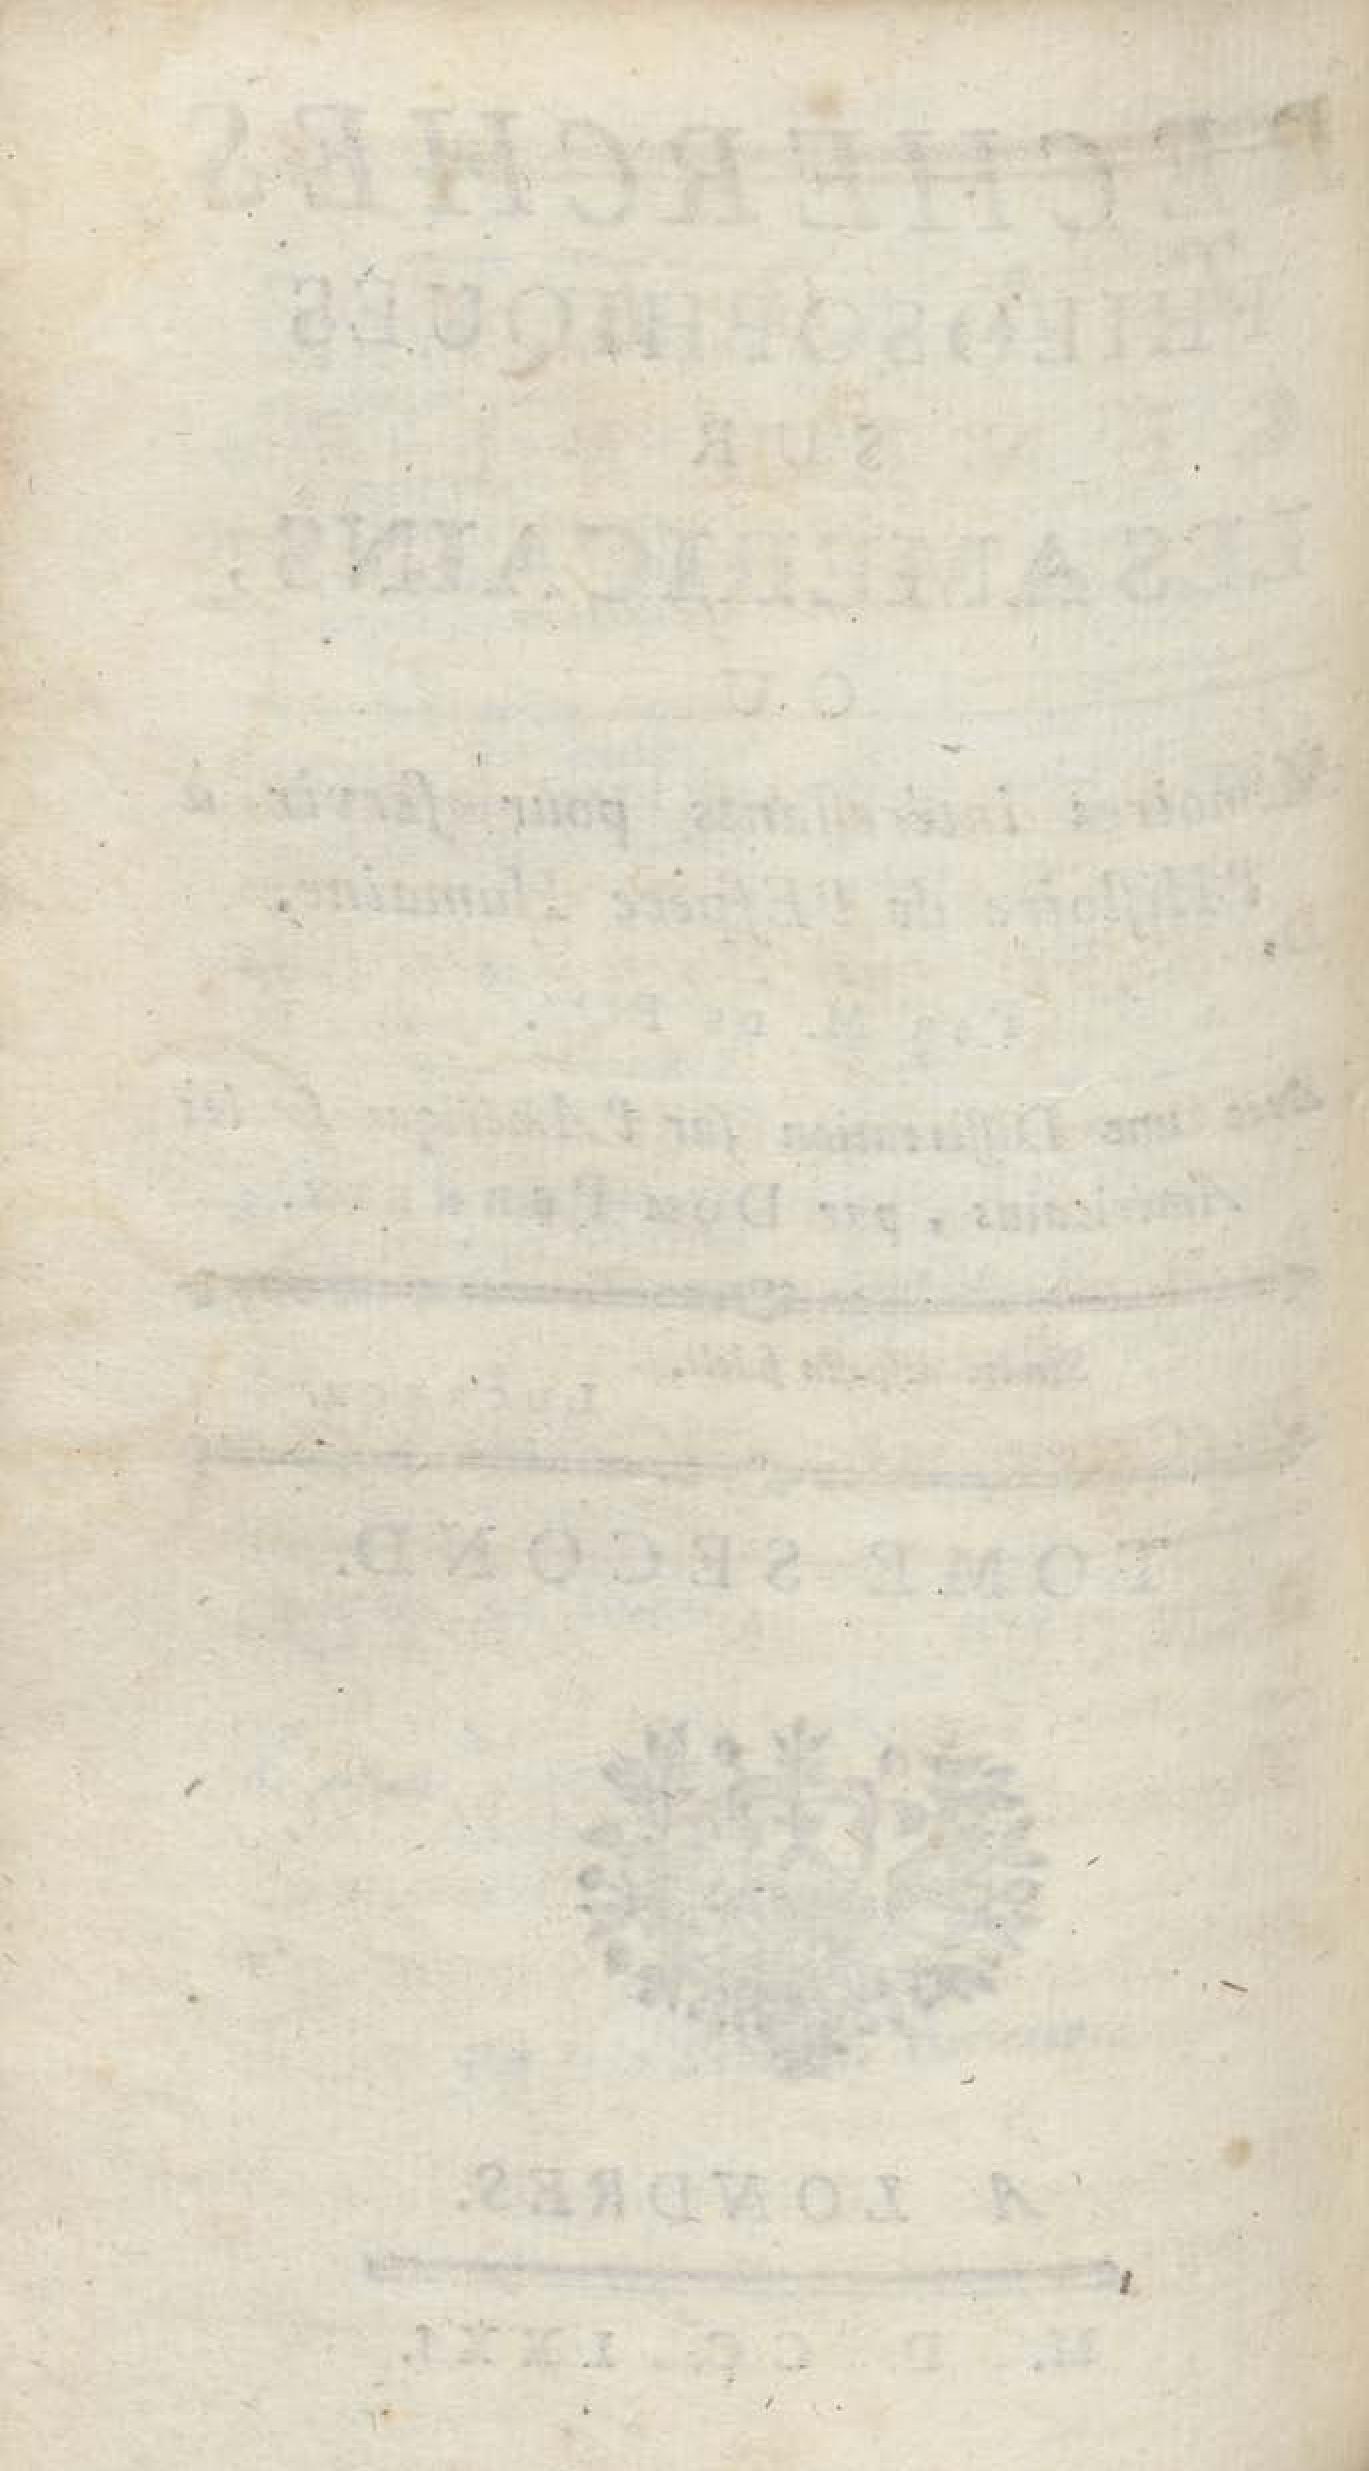 RECHERCHES
PHILOSOPHIQUES
SUR
LES AMERICAINS,
OU
Mémoires intéressants pour servir à
l'Histoire de l'Espèce Humaine.
PAR M. DE P***.
Avec une Dissertation sur l'Amérique & les
Américains, par DOM
TOME SECOND.
A LONDRES.
M. D. CC. LXXI.